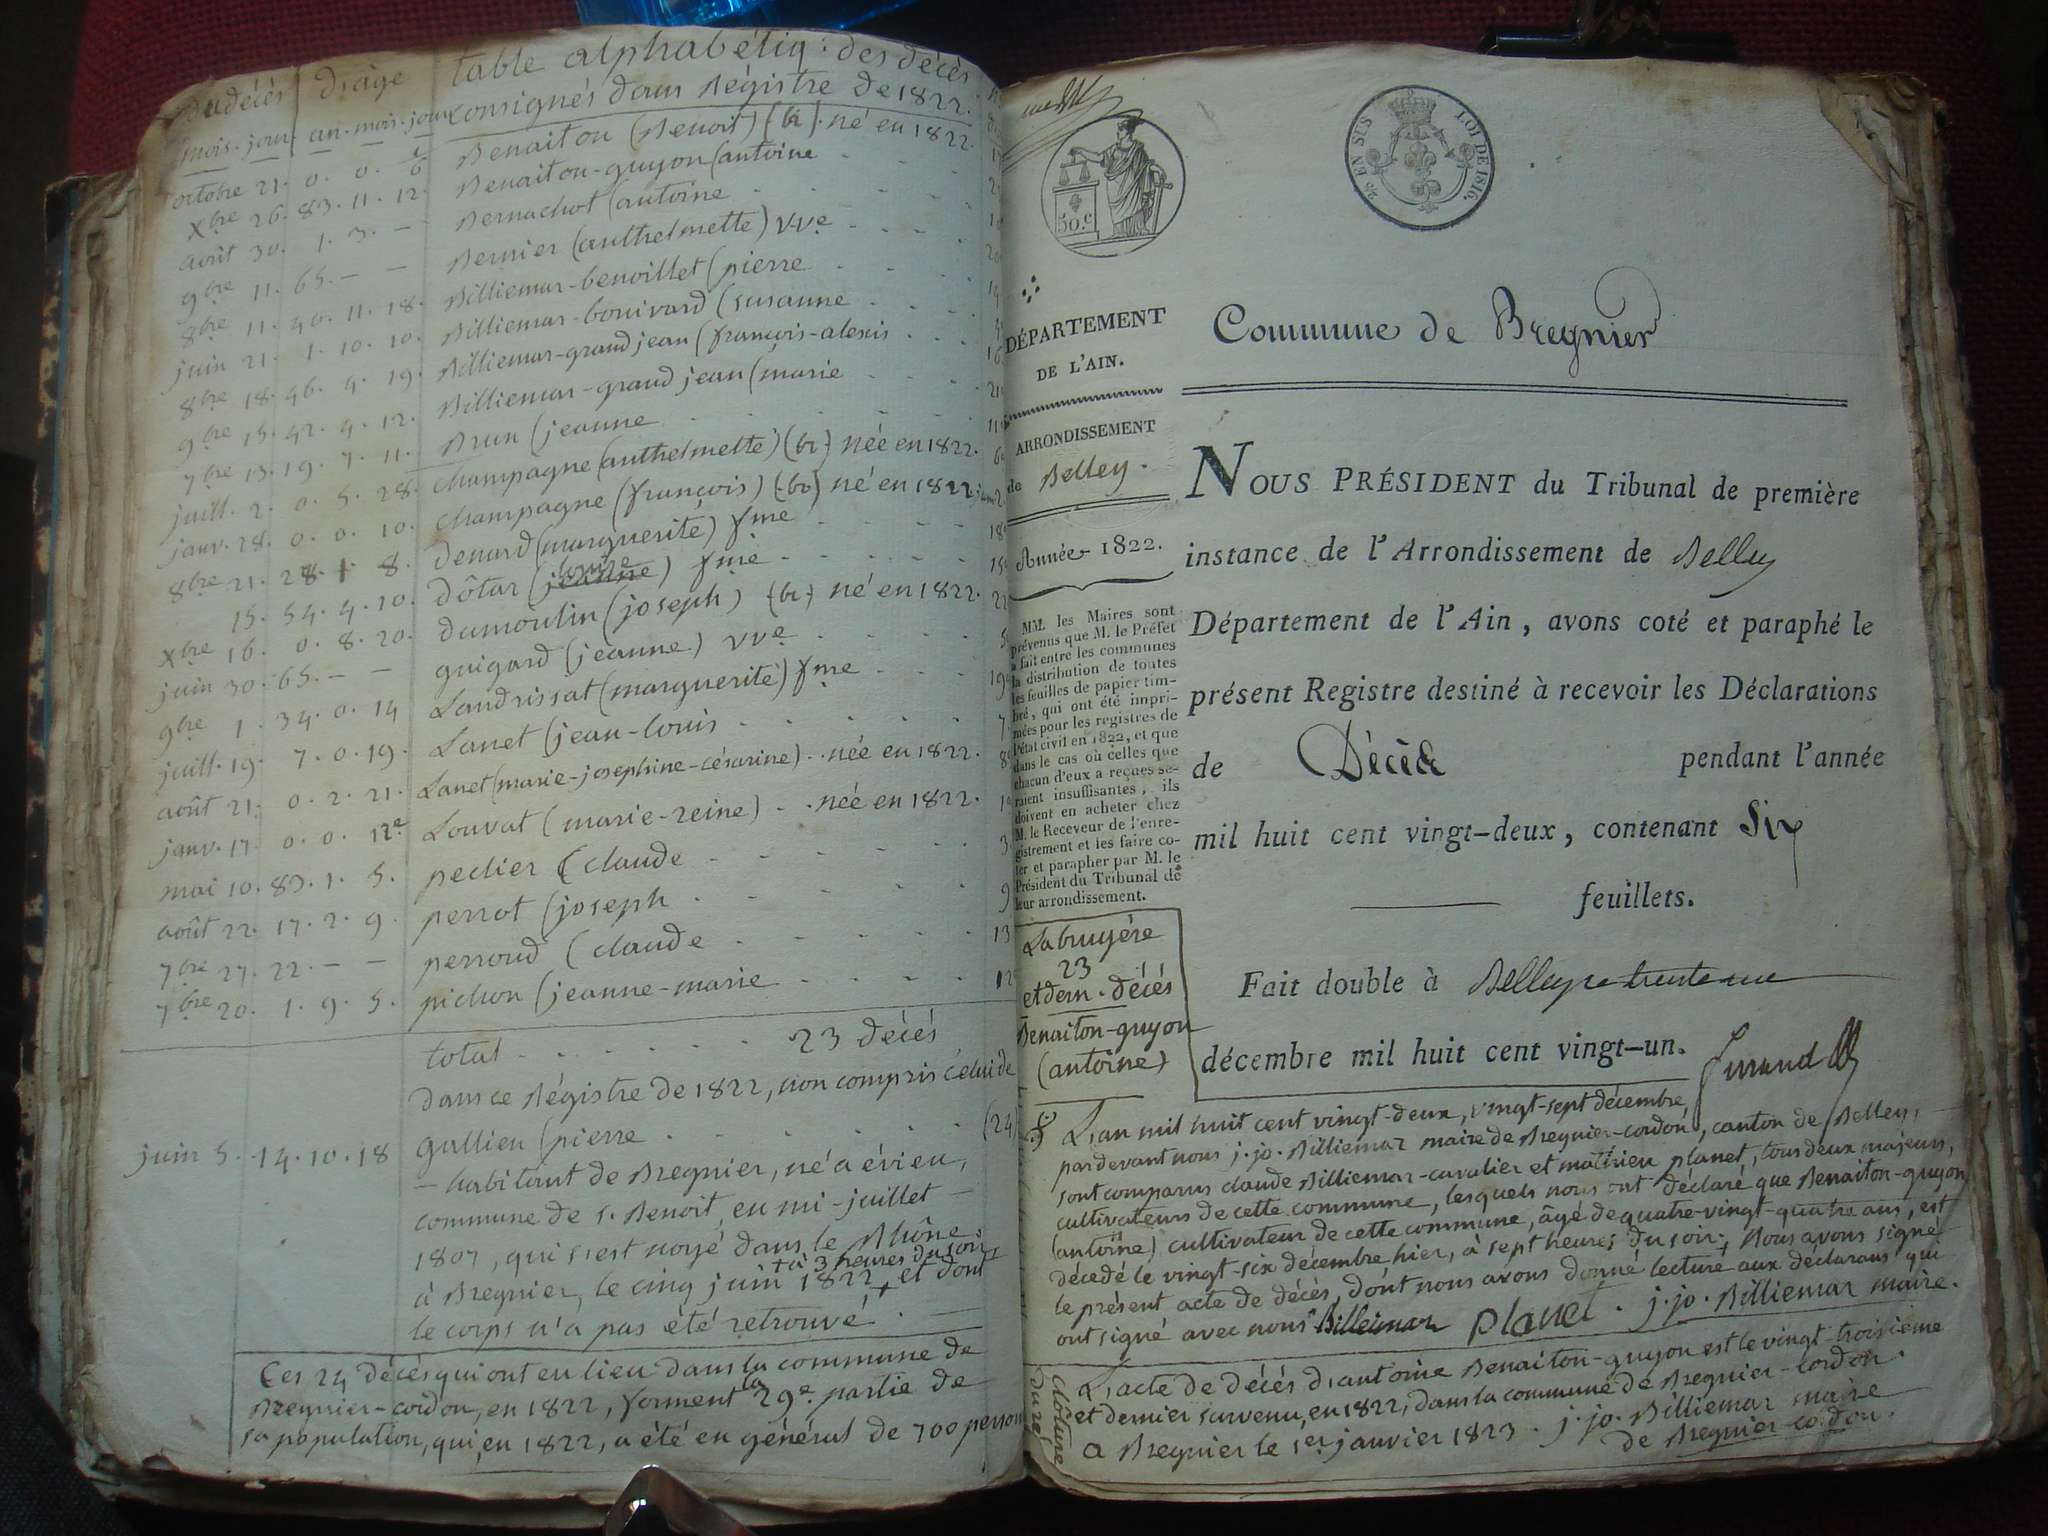 du décès d'âge table alphabétiq: des décès
mois. jour. an. mois. jour consignés dans Régistre de 1822.
octobre 21. 0. 0. 6 Benaiton (Benoit) (bi). né en 1822.
xbre 26. 83. 11. 12. Benaiton-guyon (antoine
août 30. 1. 3. — Bernachot (antoine
9bre 11. 65. — — Bernier (anthelmette) vve
8bre 11. 40. 11. 18. Billiemar-benoillet (pierre
juin 21. 1. 10. 10. Billiemar-bonivard (susanne
8bre 18. 46. 4. 19. Billiemar-grandjean (françois-alexis
9bre 15. 42. 4. 12. Billiemar-grand jean (marie
7bre 13. 19. 7. 11. Brun (jeanne
juill. 2. 0. 5. 28. Champagne (anthelmette) (bi) née en 1822.
janv. 28. 0. 0. 10. Champagne (françois) (bi) né en 1822
8bre 21. 28. 1. 8. Denard (marguerite) fme
15. 54. 4. 10. Dôtar (jeanne) fme
louise
xbre 16. 0. 8. 20. Dumoulin (joseph) (bi) né en 1822.
juin 30. 65. — — guigard (jeanne) vve
9bre 1. 34. 0. 14 Landrissat (marguerite) fme
juill. 19. 7. 0. 19. Lanet (jean-louis
août 21. 0. 2. 21. Lanet (marie-josephine-césarine) . . née en 1822.
janv. 17. 0. 0. 12e Louvat (marie-reine) . . née en 1822.
mai 10. 83. 1. 5. peclier (claude
août 22. 17. 2. 9. perrot (joseph
7bre 27. 22. — — perroud (claude
7bre 20. 1. 9. 5. pichon (jeanne-marie 12
total 23 décés
dans ce Régistre de 1822, non compris celui de
juin 5. 14. 10. 18 gallien (pierre (24)
— habitant de Bregnier, né a évieu,
commune de s. Benoit, en mi-juillet —
1807, qui s'est noyé dans le Rhône
+ à 3 heures du soir
à Bregnier, le cinq juin 1822 + et dont
le corps n'a pas été retrouvé
Ces 24 décès qui ont eu lieu dans la commune de
Bregnier-cordon, en 1822, forment la 29e. partie de
sa population, qui, en 1822, a été en général de 700 person
50.c
25 EN SUS LOI DE 1816.
DÉPARTEMENT
DE L'AIN.
ARRONDISSEMENT
de Belley.
Année 1822.
MM. les Maires sont
prévenus que M. le Préfet
a fait entre les communes
la distribution de toutes
les feuilles de papier tim-
bré, qui ont été impri-
mées pour les registres de
l'état civil en 1822, et que
dans le cas où celles que
chacun d'eux a reçues se-
raient insuffisantes, ils
doivent en acheter chez
M. le Receveur de l'enre-
gistrement et les faire co-
ter et parapher par M. le
Président du Tribunal de
leur arrondissement.
Labruyére
23
et dern. décés
Benaiton-guyon
(antoine)
Commune de Bregnier
NOUS PRÉSIDENT du Tribunal de première
instance de l'Arrondissement de Belley
Département de l'Ain, avons coté et paraphé le
présent Registre destiné à recevoir les Déclarations
de Décès pendant l'année
mil huit cent vingt-deux, contenant Six
feuillets.
Fait double à Belley le trente un
décembre mil huit cent vingt-un.
L'an mil huit cent vingt-deux, vingt-sept décembre
pardevant nous j. jo. Billiemar maire de Bregnier-cordon, canton de Belley,
sont comparus claude Billiemar-cavalier et mathieu planet, tous deux majeurs,
cultivateurs de cette commune, lesquels nous ont déclaré que Benaiton-guyon
(antoine) cultivateur de cette commune, âgé de quatre-vingt-quatre ans, est
décedé le vingt-six décembre hier, à sept heures du soir; Nous avons signé
le présent acte de décès, dont nous avons donné lecture aux déclarans qui
ont signé avec nous Billiemar planet. j. jo. Billiemar maire.
Clôture
du reg
L'acte de décès d'antoine Benaiton-guyon est le vingt-troisième
et dernier survenu, en 1822, dans la commune de Bregnier-cordon.
a Bregnier le 1er janvier 1823. j. jo. Billiemar maire
de Bregnier cordon.